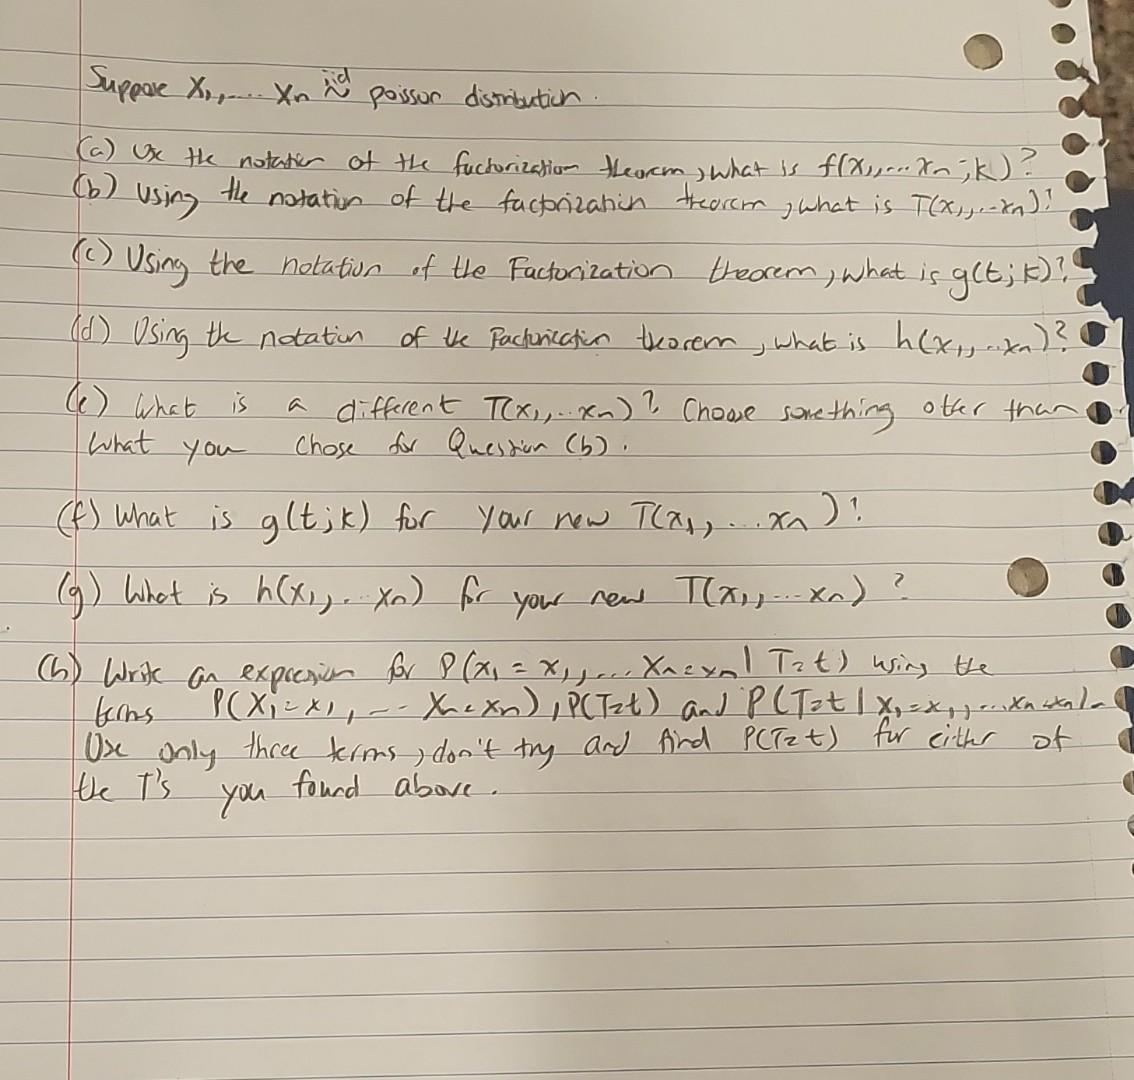 Suppose X₁,.... Xn iid ~ poisson distribution.
(a) Use the notation of the factorization theorem, what is f(x₁,...xn;k)?
(b) Using the notation of the factorization theorem, what is T(x₁,...xn)?
(c) Using the notation of the Factorization theorem, what is g(t;k)?
(d) Using the notation of the Factorization theorem, what is h(x₁,...xn)?
(e) What is a different T(x₁,..xn)? Choose something other than
what you chose for Question (b).
(f) What is g(t;k) for your new T(x₁,...xn)?
(g) What is h(x₁,...xn) for your new T(x₁,...xn)?
(h) Write an expression for P(X₁=x₁,,... Xn=xn| T=t) using the
terms P(X₁=x₁,-- Xn=xn), P(T=t) and P(T=t | X₁=x₁,...xn=xn).
Use only three terms, don't try and find P(T=t) for either of
the T's you found above.